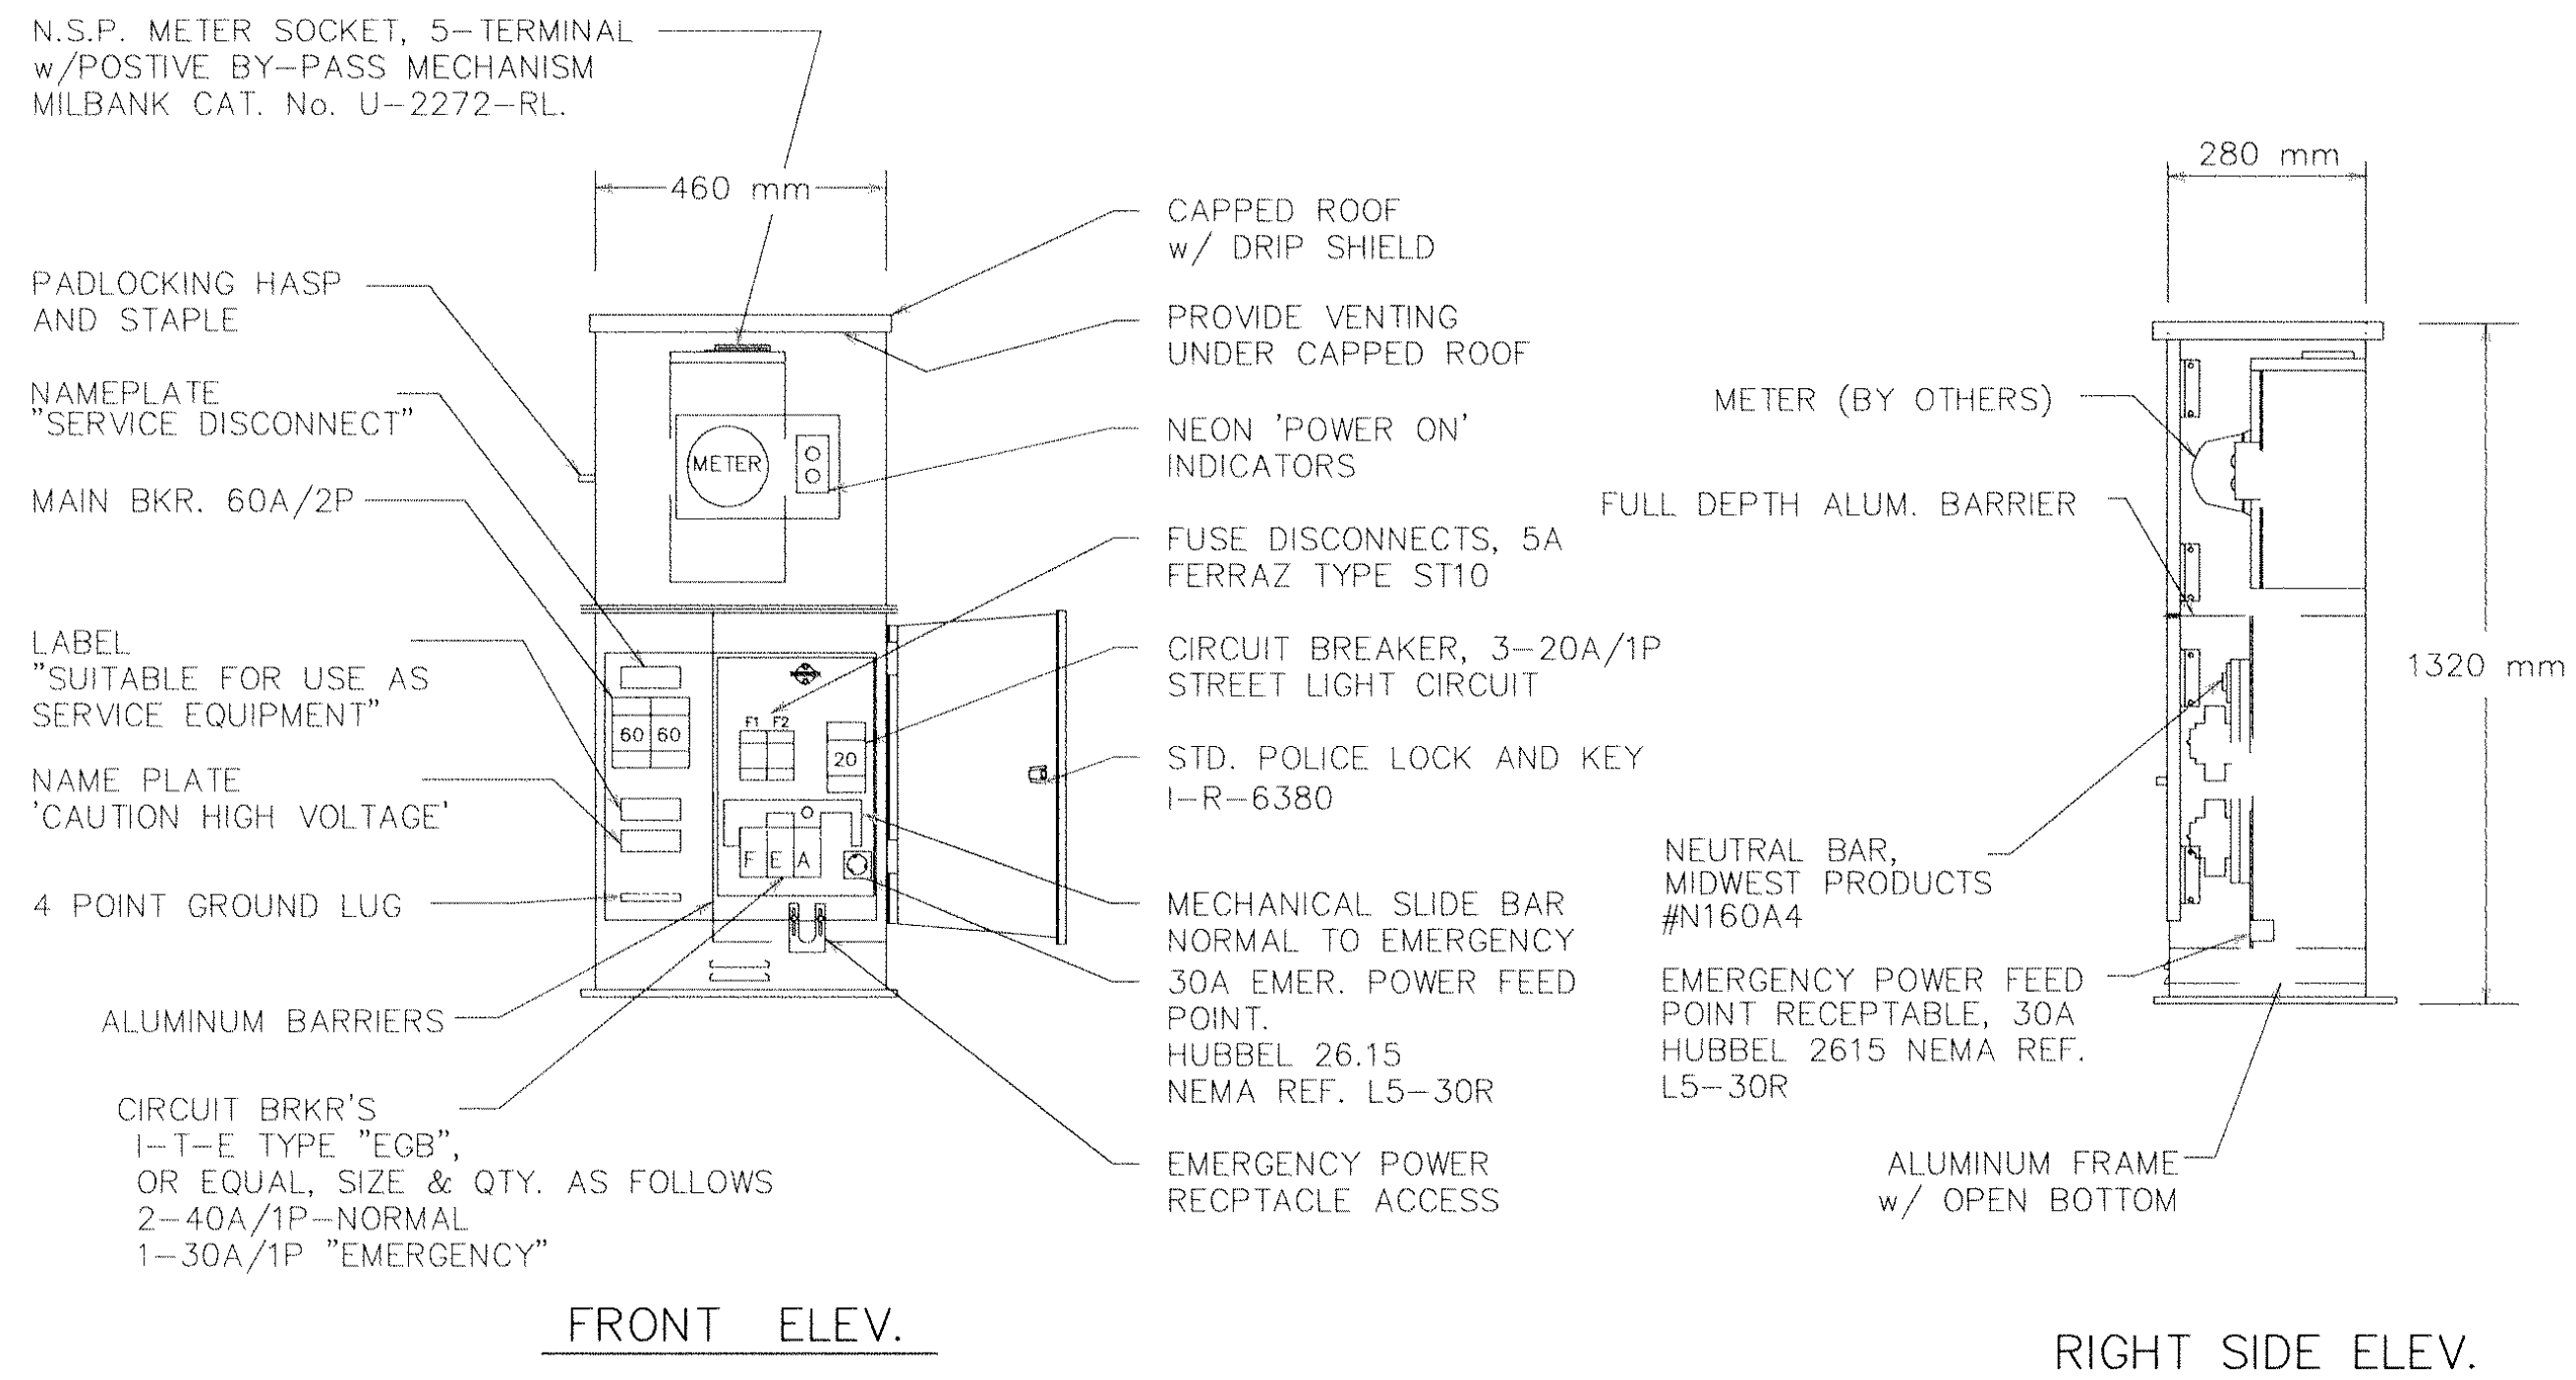 N.S.P. METER SOCKET, 5-TERMINAL
w/POSTIVE BY-PASS MECHANISM
MILBANK CAT. No. U-2272-RL.
460 mm
PADLOCKING HASP
AND STAPLE
NAMEPLATE
"SERVICE DISCONNECT"
MAIN BKR. 60A/2P
LABEL
"SUITABLE FOR USE AS
SERVICE EQUIPMENT"
NAME PLATE
'CAUTION HIGH VOLTAGE'
4 POINT GROUND LUG
ALUMINUM BARRIERS
CIRCUIT BRKR'S
I-T-E TYPE "EGB",
OR EQUAL, SIZE & QTY. AS FOLLOWS
2-40A/1P-NORMAL
1-30A/1P "EMERGENCY"
METER
F1 F2
60 60
20
F E A
CAPPED ROOF
w/ DRIP SHIELD
PROVIDE VENTING
UNDER CAPPED ROOF
NEON 'POWER ON'
INDICATORS
FUSE DISCONNECTS, 5A
FERRAZ TYPE ST10
CIRCUIT BREAKER, 3-20A/1P
STREET LIGHT CIRCUIT
STD. POLICE LOCK AND KEY
I-R-6380
MECHANICAL SLIDE BAR
NORMAL TO EMERGENCY
30A EMER. POWER FEED
POINT.
HUBBEL 26.15
NEMA REF. L5-30R
EMERGENCY POWER
RECPTACLE ACCESS
FRONT ELEV.
280 mm
METER (BY OTHERS)
FULL DEPTH ALUM. BARRIER
1320 mm
NEUTRAL BAR,
MIDWEST PRODUCTS
#N160A4
EMERGENCY POWER FEED
POINT RECEPTABLE, 30A
HUBBEL 2615 NEMA REF.
L5-30R
ALUMINUM FRAME
w/ OPEN BOTTOM
RIGHT SIDE ELEV.